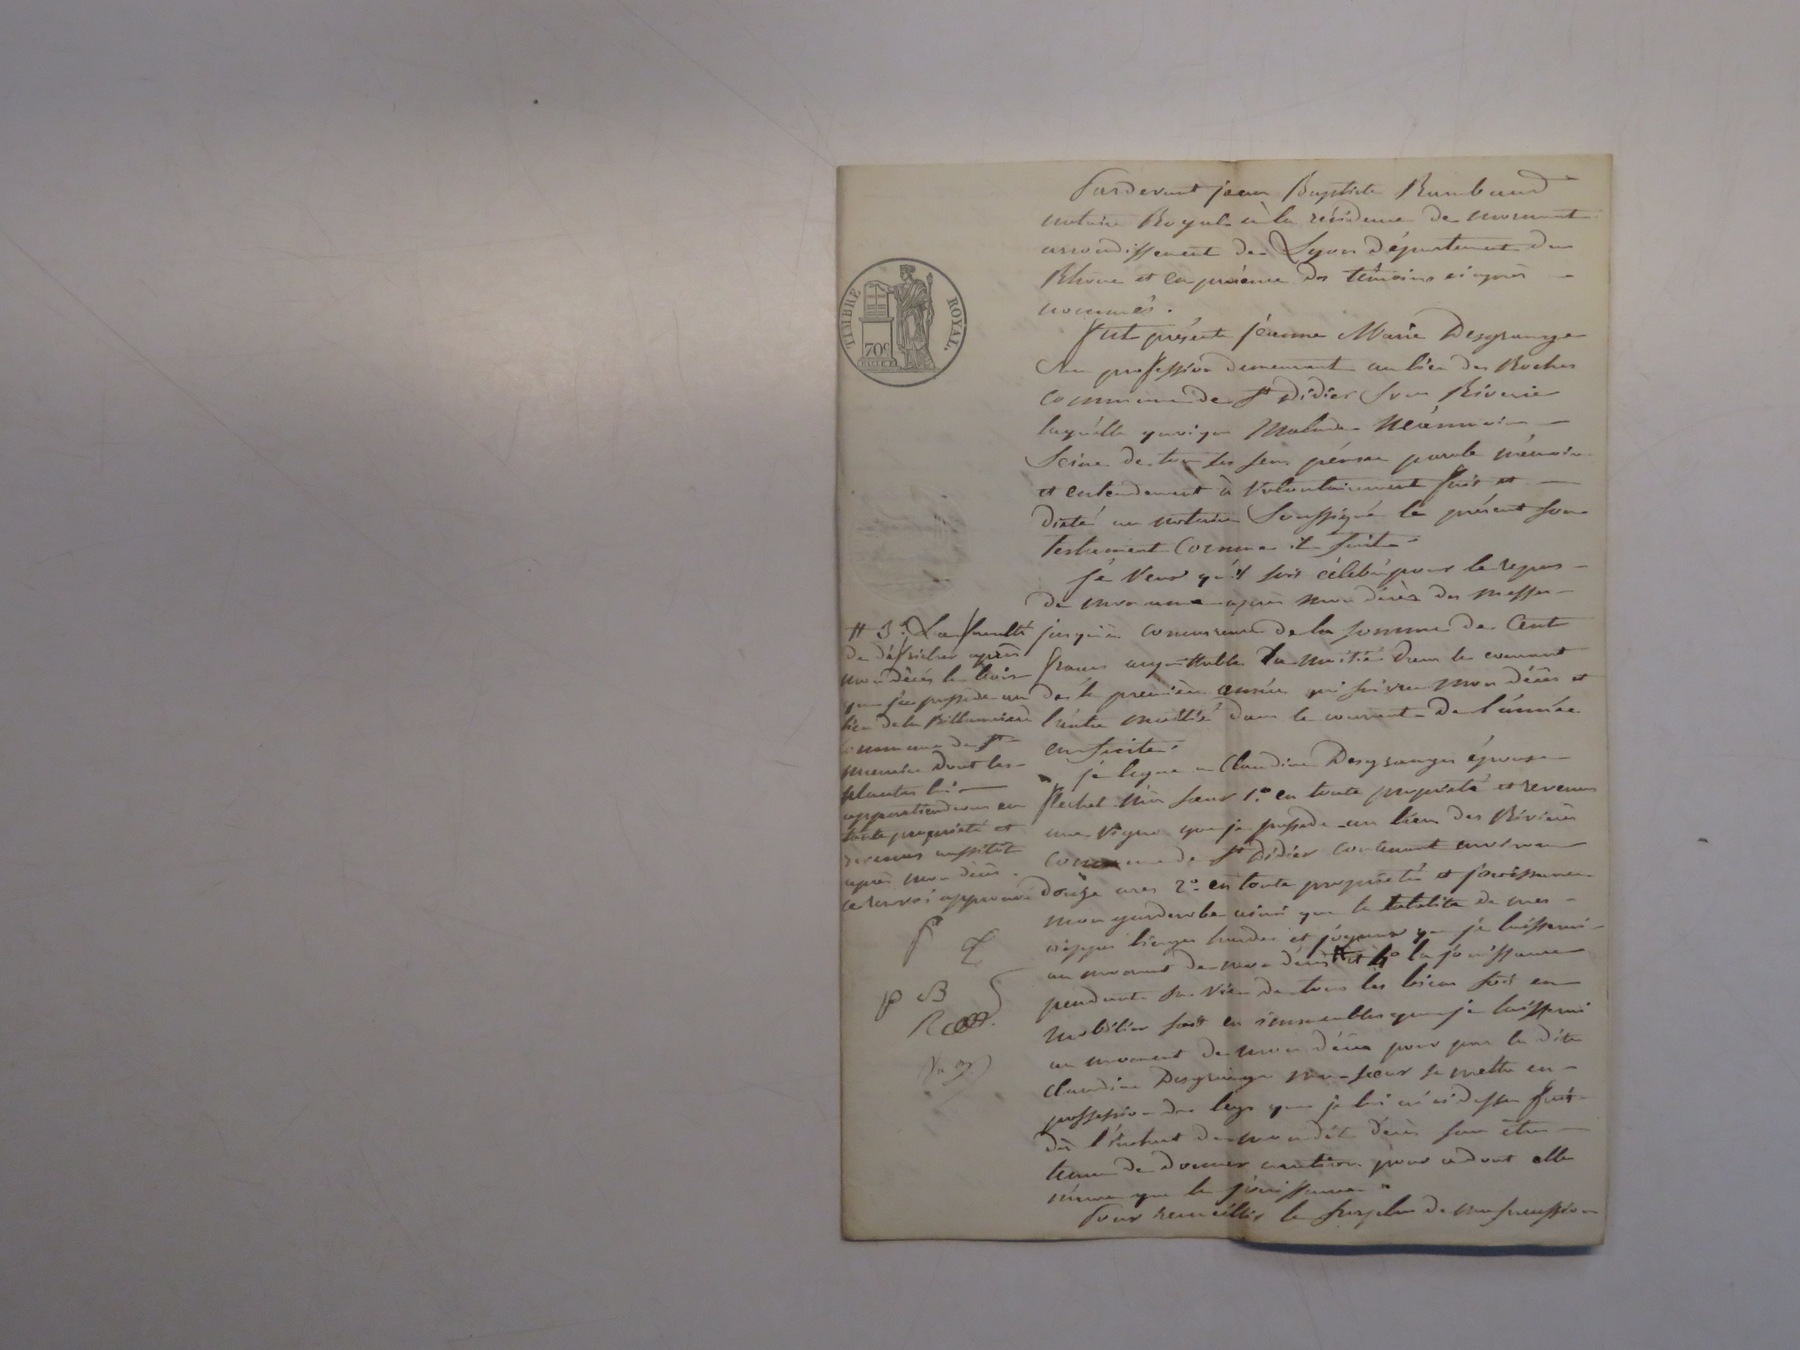 Pardevant jean Baptiste Rambaud
notaire Royal à la résidence de mornant
arrondissement de Lyon département du
Rhône et en présence des témoins ci après
nommés.
fut présente jeanne Marie Desgrange
San profession demeurant au lieu des Roches
commune de St Didier Sous Riverie
laquelle quoique Malade Néanmoins
Seine de tous ses sens pensée parole mémoire
et entendement à volontairement fait et
dicté au notaire Soussigné le présent son
testament Comme il suit
je veux qu'il soit célébré pour le repos
de mon ame après mon décès des messes
jusqu'à concurrence de la somme de Cent
francs acquittable la moitié dans le courant
de la première année qui suivra mon décès et
l'autre moitié dans le courant de l'année
en suite.
je legue a Claudine Desgranges épouse
flechet Ma sœur 1.° en toute propriété et revenus
une vigne que je possede au lieu des Rivières
commune de St Didier contenant environ
douze ares 2.° en toute propriété et jouissance
mon garderobe ainsi que la totalité de mes
nippes linges hardes et joyaux que je laisserai
au moment de mon décès # et 4° la jouissance
pendant sa vie de tous les biens soit en
mobilier soit en immeubles que je laisserai
au moment de mon décès pour par la dite
Claudine Desgrange ma sœur se mettre en
possession des legs que je lui ai ci dessus fait
dès l'instant de mon dit décès sans être
tenue de donner caution pour ce dont elle
n'aura que la jouissance
Pour recueillir le surplus de ma succession
TIMBRE ROYAL.
70c
# 3.° La faculté
de défricher après
mon décès le bois
que je possede au
lieu de la
commune de St
dont les
plantes lui
appartiendront en
toute propriété et
revenus aussitôt
après mon décès.
ce renvoi approuvé